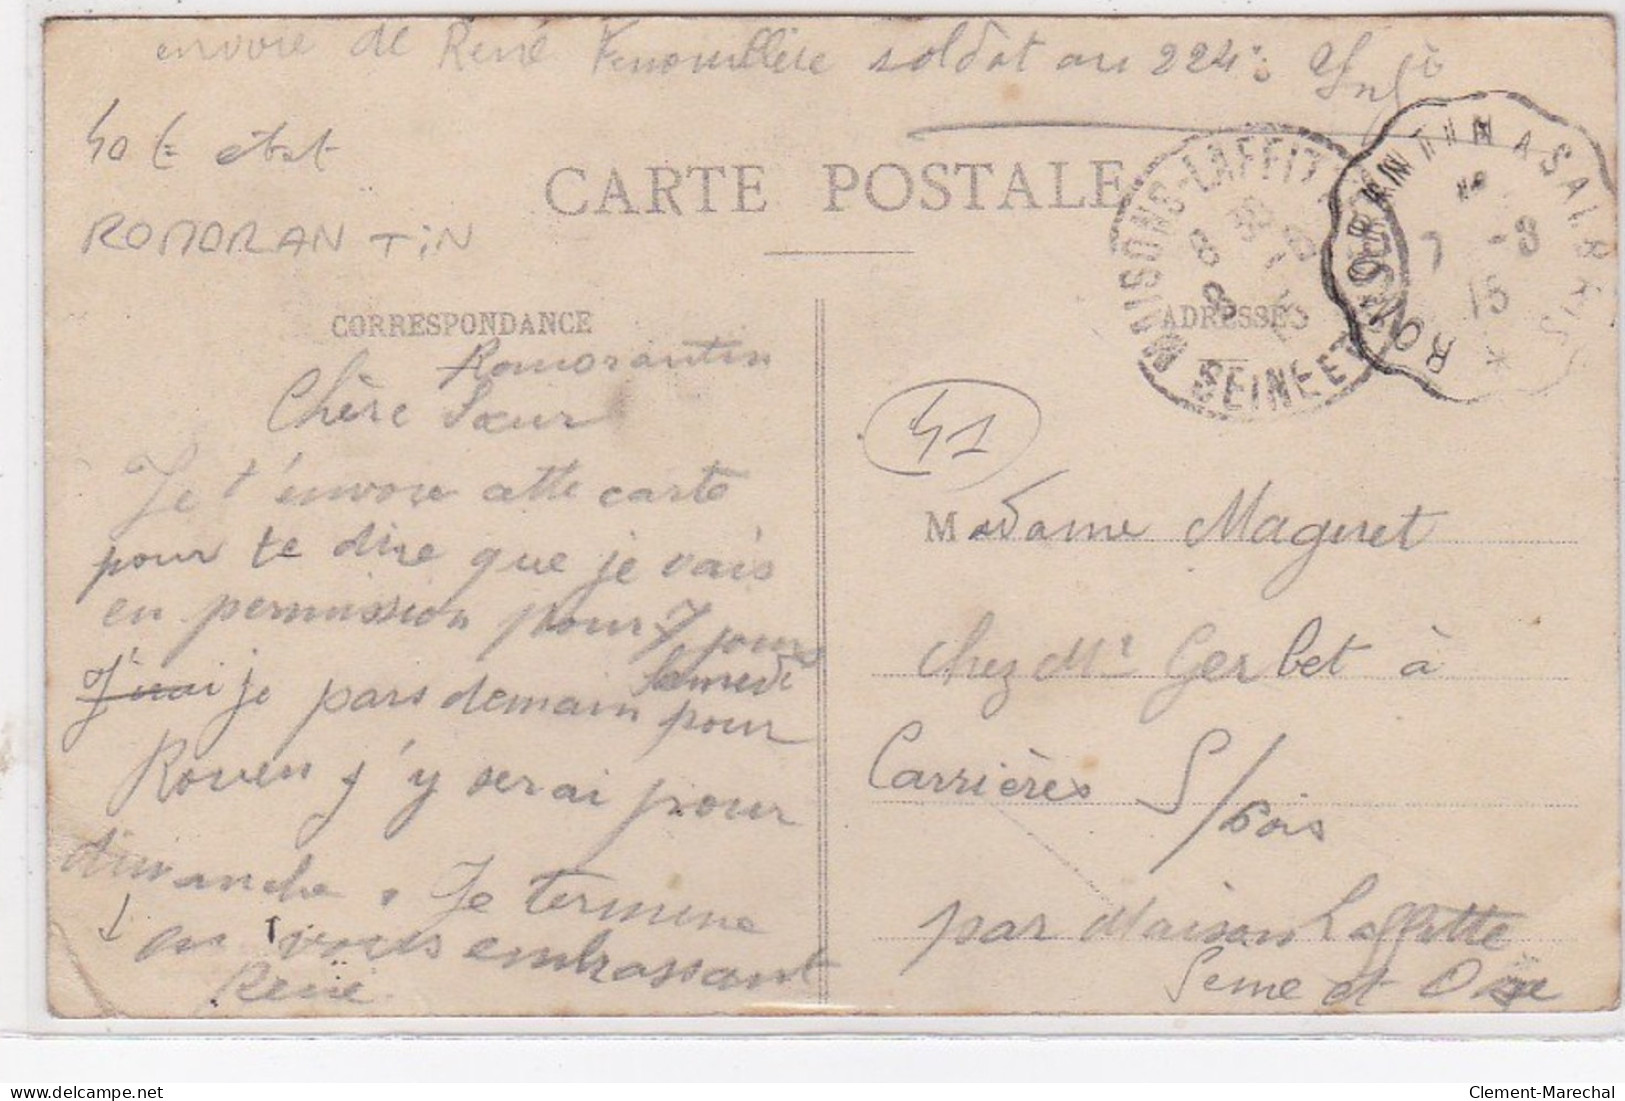 envoie de René Fenouillere soldat au 224e Inf
40 € état
ROMORANTIN
CARTE POSTALE
MAISONS-LAFFITTE
SEINE ET
ROMORANTIN A SALBRIS
7 -8
15
CORRESPONDANCE
ADRESSE
Romorantin
Chère Sœur
Je t'envoie cette carte
pour te dire que je vais
en permission pour 7 jours
J'irai je pars demain Samedi pour
Rouen j'y serai pour
dimanche. Je termine
en vous embrassant
René
41
Madame Maguet
chez Mr Gerbet à
Carrières S/bois
par Maison Laffitte
Seine et Oise
Clement-Marechal